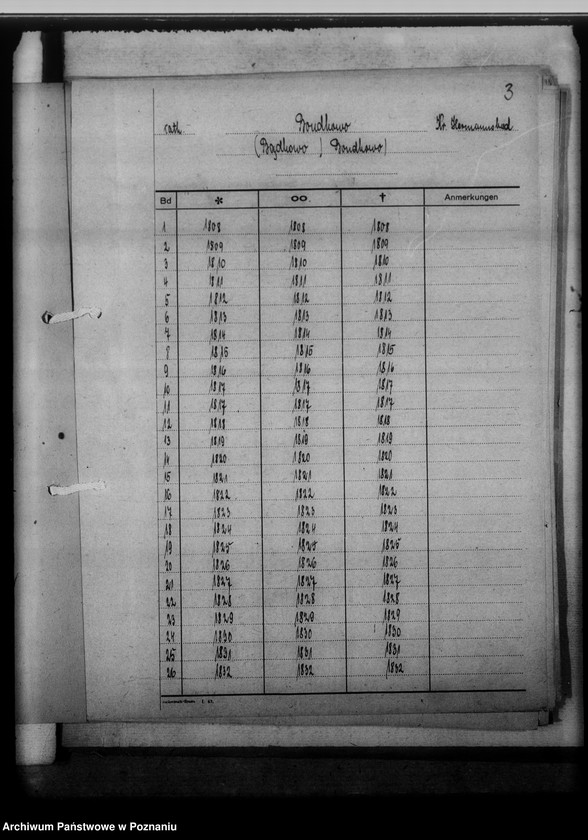 3
cath. Bondkowo Kr. Hermannsbad
(Bądkowo / Bondkowo)
Bd * ∞ † Anmerkungen
1 1808 1808 1808
2 1809 1809 1809
3 1810 1810 1810
4 1811 1811 1811
5 1812 1812 1812
6 1813 1813 1813
7 1814 1814 1814
8 1815 1815 1815
9 1816 1816 1816
10 1817 1817 1817
11 1817 1817 1817
12 1818 1818 1818
13 1819 1819 1819
14 1820 1820 1820
15 1821 1821 1821
16 1822 1822 1822
17 1823 1823 1823
18 1824 1824 1824
19 1825 1825 1825
20 1826 1826 1826
21 1827 1827 1827
22 1828 1828 1828
23 1829 1829 1829
24 1830 1830 1830
25 1831 1831 1831
26 1832 1832 1832
Archiwum Państwowe w Poznaniu